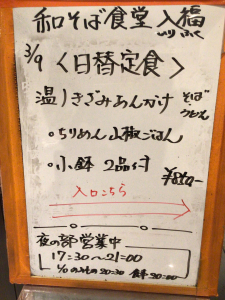 和そば食堂 入福
いりふく
3/9 〈日替定食〉
温)きざみあんかけ そば・うどん
○ちりめん山椒ごはん
○小鉢 2品付
入口こちら
夜の部営業中
17:30〜21:00
20:30 20:00